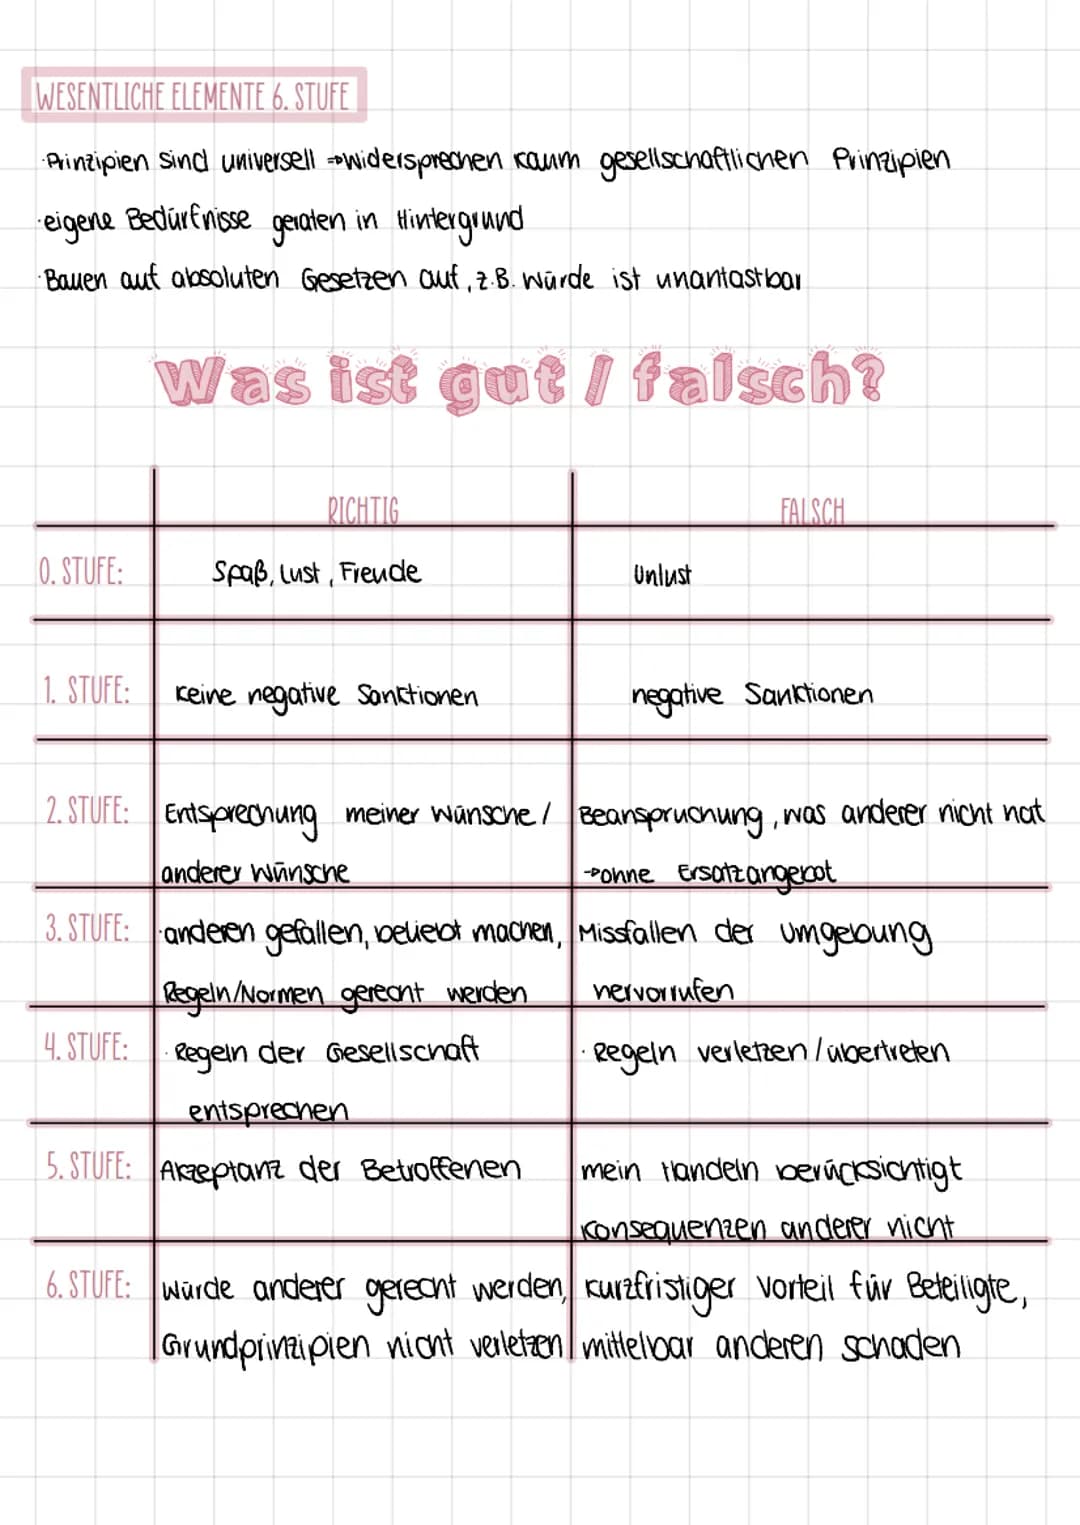 WESENTLICHE ELEMENTE 6. STUFE
·Prinzipien sind universell ⇒widersprechen kaum gesellschaftlichen Prinzipien
·eigene Bedürfnisse geraten in Hintergrund
·Bauen auf absoluten Gesetzen auf, z.B. Würde ist unantastbar
Was ist gut / falsch?
RICHTIG FALSCH
0. STUFE: Spaß, Lust, Freude Unlust
1. STUFE: keine negative Sanktionen negative Sanktionen
2. STUFE: Entsprechung meiner Wünsche / Beanspruchung, was anderer nicht hat
anderer Wünsche →ohne Ersatzangebot
3. STUFE: ·anderen gefallen, beliebt machen, Missfallen der Umgebung
Regeln/Normen gerecht werden hervorrufen
4. STUFE: · Regeln der Gesellschaft · Regeln verletzen / übertreten
entsprechen
5. STUFE: Akzeptanz der Betroffenen mein Handeln berücksichtigt
Konsequenzen anderer nicht
6. STUFE: Würde anderer gerecht werden, kurzfristiger Vorteil für Beteiligte,
Grundprinzipien nicht verletzen mittelbar anderen schaden